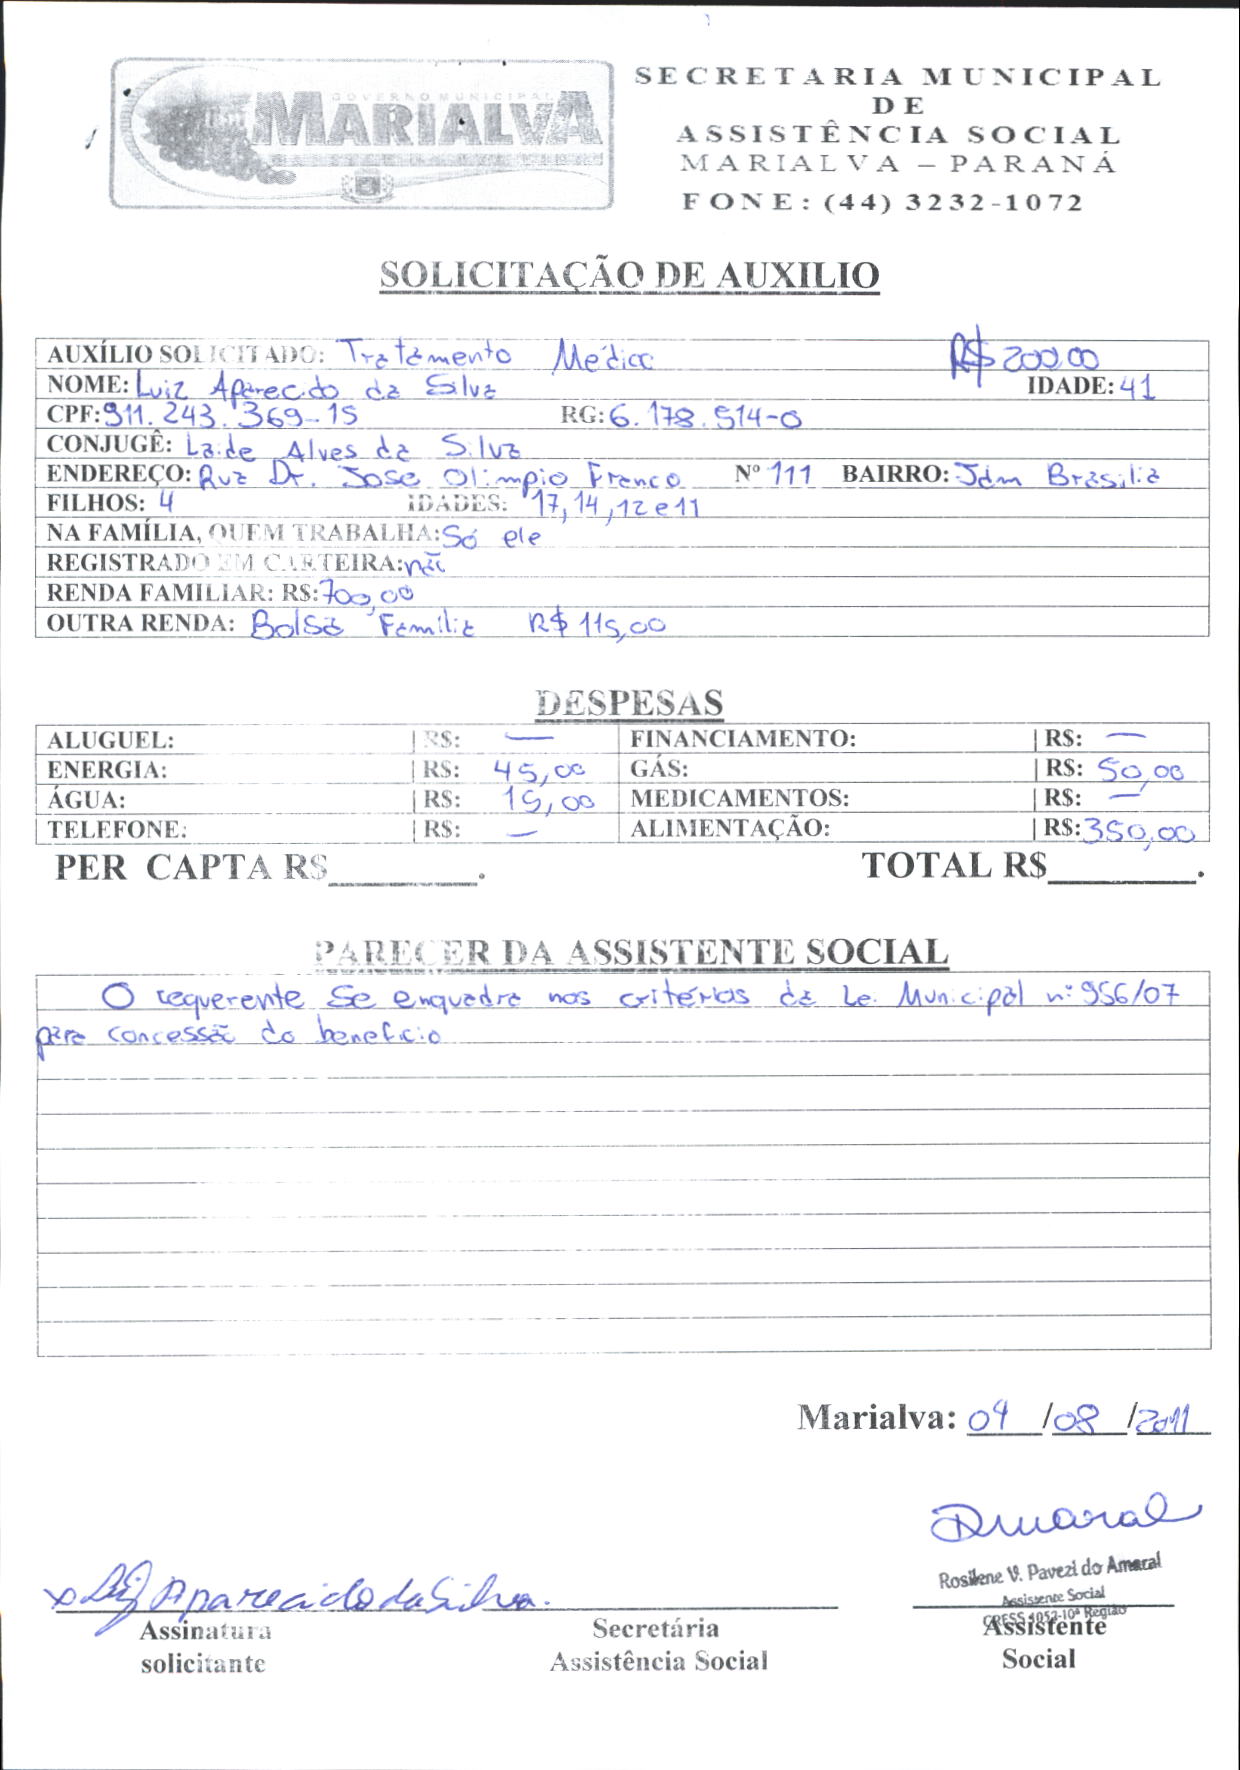 GOVERNO MUNICIPAL
MARIALVA
SECRETARIA MUNICIPAL
DE
ASSISTÊNCIA SOCIAL
MARIALVA – PARANÁ
FONE: (44) 3232-1072
SOLICITAÇÃO DE AUXILIO
AUXÍLIO SOLICITADO: Tratamento Médico R$ 200,00
NOME: Luiz Aparecido da Silva IDADE: 41
CPF: 911.243.369-15 RG: 6.178.914-0
CONJUGÊ: Laide Alves da Silva
ENDEREÇO: Rua Dr. Jose Olimpio Franco Nº 111 BAIRRO: Jdm Brasilia
FILHOS: 4 IDADES: 17, 14, 12 e 11
NA FAMÍLIA, QUEM TRABALHA: Só ele
REGISTRADO EM CARTEIRA: não
RENDA FAMILIAR: R$: 700,00
OUTRA RENDA: Bolsa Família R$ 115,00
DESPESAS
ALUGUEL: R$: — FINANCIAMENTO: R$: —
ENERGIA: R$: 45,00 GÁS: R$: 50,00
ÁGUA: R$: 15,00 MEDICAMENTOS: R$: —
TELEFONE: R$: — ALIMENTAÇÃO: R$: 350,00
PER CAPTA R$________. TOTAL R$________.
PARECER DA ASSISTENTE SOCIAL
O requerente se enquadra nos critérios da Lei Municipal nº 956/07
para concessão do benefício
Marialva: 04/08/2011
Amaral
Rosilene V. Pavezi do Amaral
Assistente Social
CRESS 4052-10ª Região
x Luiz Aparecido da Silva.
Assinatura Secretária Assistente
solicitante Assistência Social Social